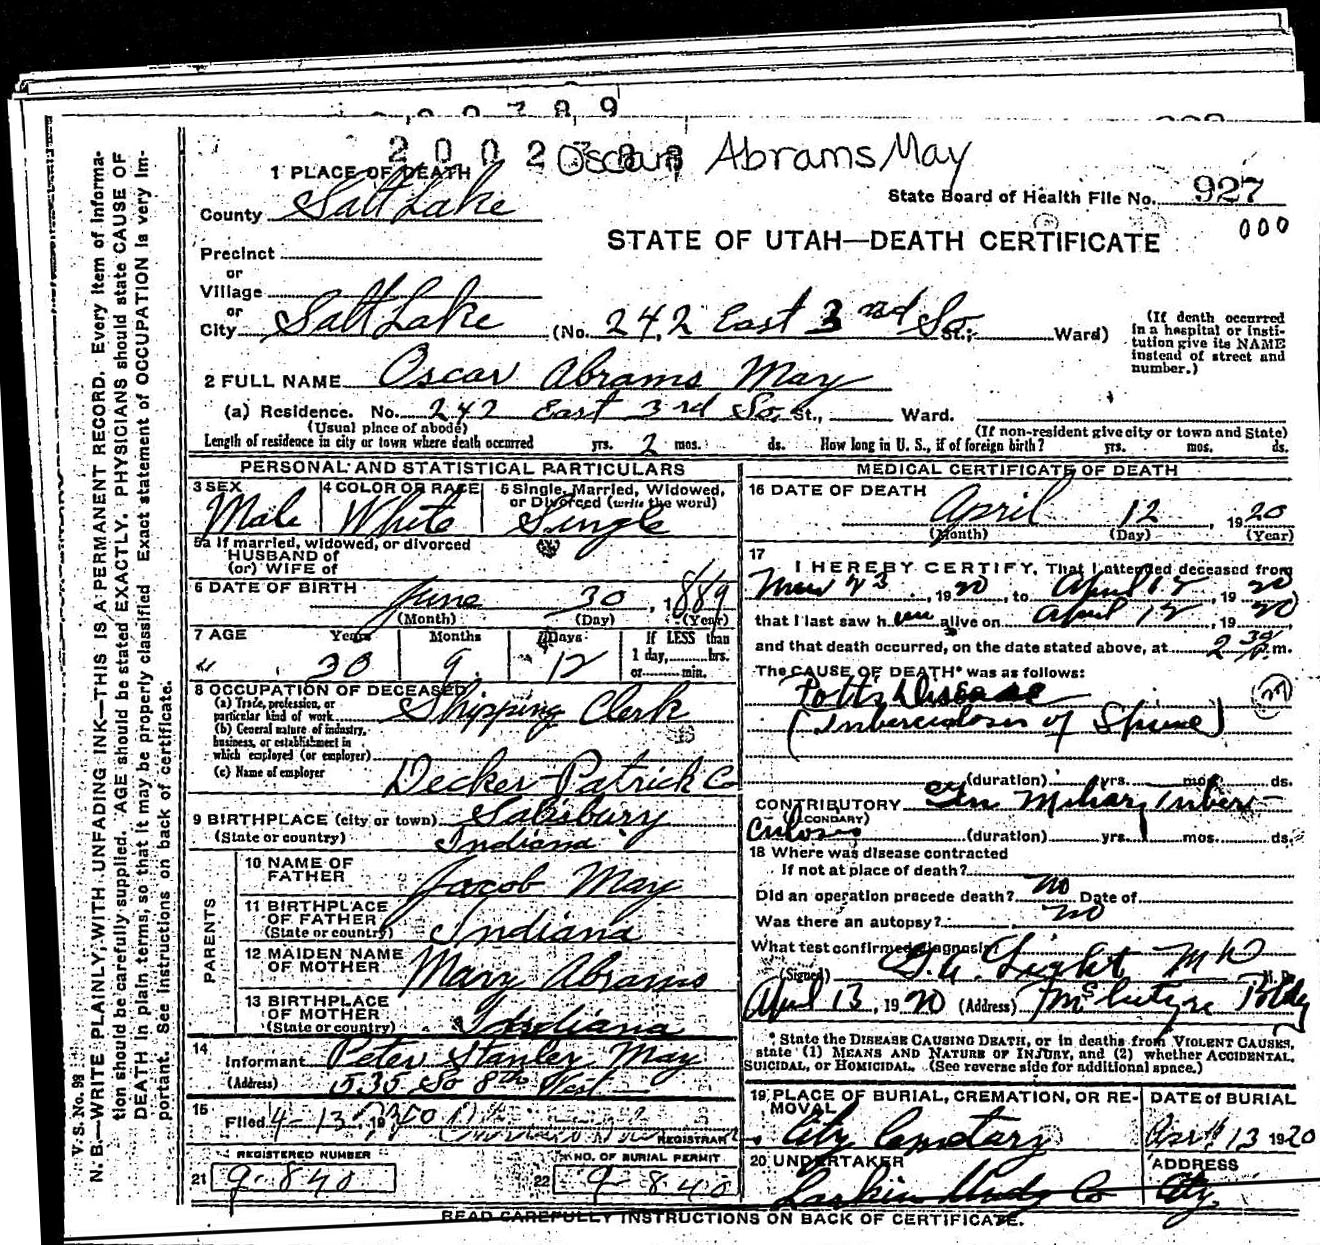 2 0 0 2
Oscar Abrams May
1 PLACE OF DEATH
County Salt Lake
State Board of Health File No. 927
000
STATE OF UTAH—DEATH CERTIFICATE
Precinct
or
Village
or
City Salt Lake (No. 242 East 3rd So. St.; Ward)
(If death occurred in a hospital or institution give its NAME instead of street and number.)
2 FULL NAME Oscar Abrams May
(a) Residence. No. 242 East 3rd So. St., Ward.
(Usual place of abode) (If non-resident give city or town and State)
Length of residence in city or town where death occurred yrs. 2 mos. ds. How long in U. S., if of foreign birth? yrs. mos. ds.
PERSONAL AND STATISTICAL PARTICULARS
3 SEX Male
4 COLOR OR RACE White
5 Single, Married, Widowed, or Divorced (write the word) Single
5a If married, widowed, or divorced
HUSBAND of
(or) WIFE of
6 DATE OF BIRTH June 30, 1889
(Month) (Day) (Year)
7 AGE Years 30 Months 9 Days 12 If LESS than 1 day, hrs. or min.
8 OCCUPATION OF DECEASED
(a) Trade, profession, or particular kind of work Shipping Clerk
(b) General nature of industry, business, or establishment in which employed (or employer)
(c) Name of employer Decker Patrick Co
9 BIRTHPLACE (city or town) Salisbury
(State or country) Indiana
PARENTS
10 NAME OF FATHER Jacob May
11 BIRTHPLACE OF FATHER (State or country) Indiana
12 MAIDEN NAME OF MOTHER Mary Abrams
13 BIRTHPLACE OF MOTHER (State or country) Indiana
14 Informant Peter Stanley May
(Address) 535 So 8th West
15 Filed 4-13, 19 20
REGISTRAR
REGISTERED NUMBER
21 9-840
NO. OF BURIAL PERMIT
22 9-840
MEDICAL CERTIFICATE OF DEATH
16 DATE OF DEATH
April 12, 1920
(Month) (Day) (Year)
17 I HEREBY CERTIFY, That I attended deceased from
23, 1920, to April 12, 1920
that I last saw him alive on April 12, 1920
and that death occurred, on the date stated above, at 2 30 p.m.
The CAUSE OF DEATH* was as follows:
Potts Disease
(Tuberculosis of Spine)
(duration) yrs. mos. ds.
CONTRIBUTORY Gen Miliary Tuber-
(SECONDARY)
culosis (duration) yrs. mos. ds.
18 Where was disease contracted
If not at place of death?
Did an operation precede death? no Date of
Was there an autopsy? no
What test confirmed diagnosis?
(Signed) Light M D M. D.
April 13, 1920 (Address) McIntyre Bldg
* State the DISEASE CAUSING DEATH, or in deaths from VIOLENT CAUSES, state (1) MEANS AND NATURE OF INJURY, and (2) whether ACCIDENTAL, SUICIDAL, or HOMICIDAL. (See reverse side for additional space.)
19 PLACE OF BURIAL, CREMATION, OR REMOVAL City Cemetary
DATE of BURIAL April 13 1920
20 UNDERTAKER Larkin Undg Co
ADDRESS City
READ CAREFULLY INSTRUCTIONS ON BACK OF CERTIFICATE.
V. S. No. 98
N. B.—WRITE PLAINLY, WITH UNFADING INK—THIS IS A PERMANENT RECORD. Every item of informa-
tion should be carefully supplied. AGE should be stated EXACTLY. PHYSICIANS should state CAUSE OF
DEATH in plain terms, so that it may be properly classified. Exact statement of OCCUPATION is very im-
portant. See instructions on back of certificate.